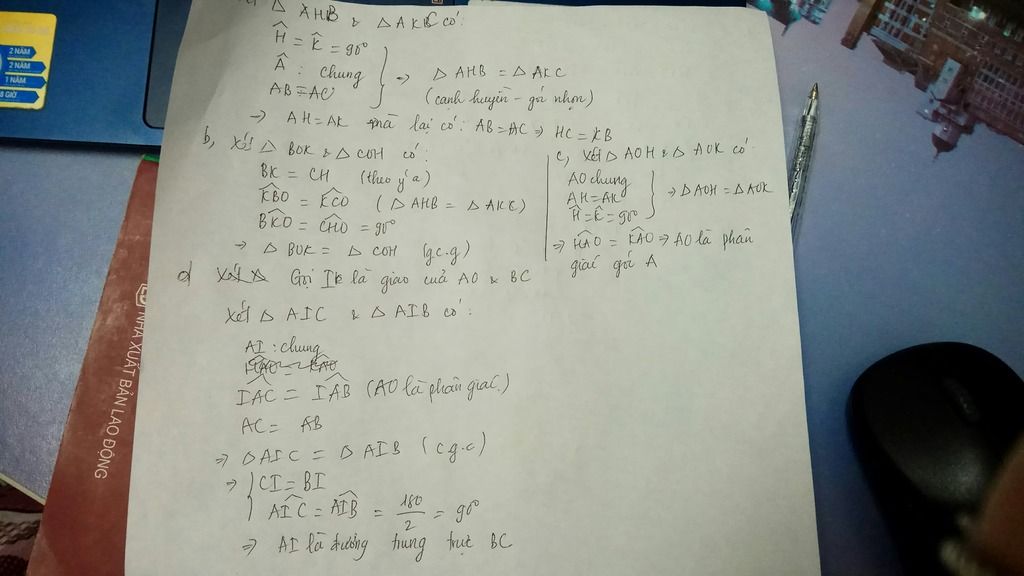 Δ AHB & Δ AKC có:
Ĥ = K̂ = 90°
Â : chung
AB = AC
→ Δ AHB = Δ AKC
(cạnh huyền - góc nhọn)
→ AH = AK mà lại có: AB = AC → HC = KB
b, Xét Δ BOK & Δ COH có:
BK = CH (theo ý a)
K̂BO = K̂CO (Δ AHB = Δ AKC)
B̂KO = ĈHO = 90°
→ Δ BOK = Δ COH (g.c.g)
c, Xét Δ AOH & Δ AOK có:
AO chung
AH = AK
Ĥ = K̂ = 90°
→ Δ AOH = Δ AOK
⇒ ĤAO = K̂AO ⇒ AO là phân
giác góc A
d Gọi I là giao của AO & BC
Xét Δ AIC & Δ AIB có:
AI : chung
ÎAC = ÎAB (AO là phân giác)
AC = AB
⇒ Δ AIC = Δ AIB (c.g.c)
⇒ CI = BI
ÂIC = ÂIB = 180/2 = 90°
⇒ AI là đường trung trực BC
NHÀ XUẤT BẢN LAO ĐỘNG
2 NĂM
2 NĂM
1 NĂM
8 GIỜ